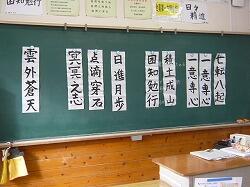 七転八起
一意専心
一意専心
積土成山
困知勉行
日進月歩
点滴穿石
冥冥之志
雲外蒼天
困知勉行
日々精進